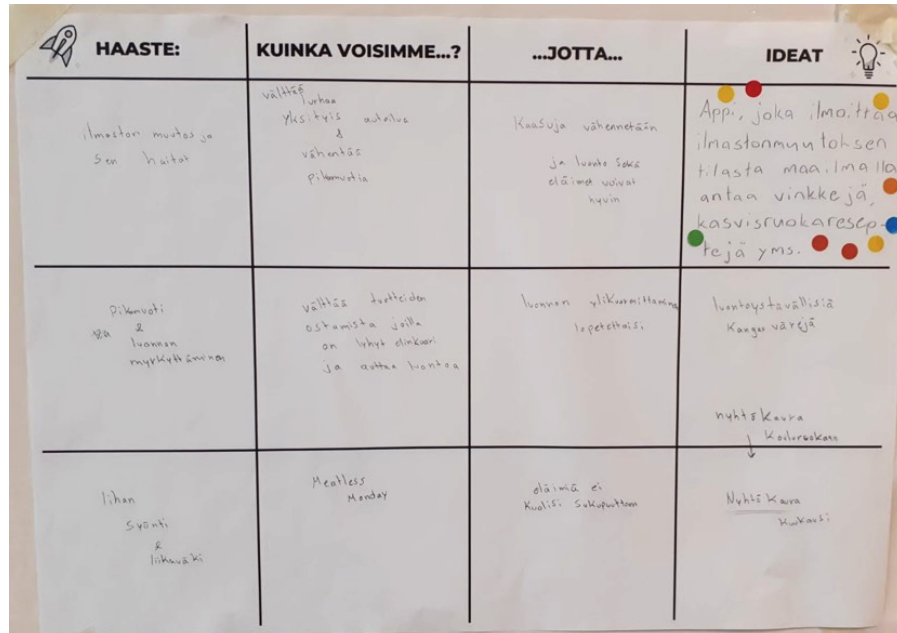 HAASTE:
KUINKA VOISIMME...?
...JOTTA...
IDEAT
ilmaston muutos ja
sen haitat
välttää
turhaa
yksityis autoilua
&
vähentää
pikamuotia
Kaasuja vähennetään
ja luonto sekä
eläimet voivat
hyvin
Appi, joka ilmoittaa
ilmastonmuutoksen
tilasta maailmalla
antaa vinkkejä,
kasvisruokaresep-
tejä yms.
Pikamuoti
&
luonnon
myrkyttäminen
välttää tuotteiden
ostamista joilla
on lyhyt elinkaari
ja auttaa luontoa
luonnon ylikuormittaminen
lopetettaisi
luontoystävällisiä
Kangas värejä
nyhtökaura
Kouluruokana
lihan
syönti
&
liikaväki
Meatless
Monday
eläimiä ei
Kuolisi sukupuuttoon
Nyhtö Kaura
Kuukausi